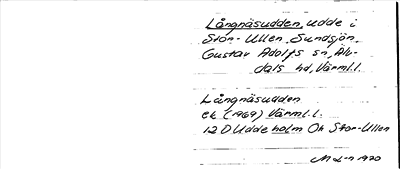 Långnäsudden, udde i
Stor-Ullen, Sundsjön,
Gustav Adolfs sn, Älv-
dals hd, Värml.l.
Långnäsudden
ek (1969) Värml.l.
12 D Uddeholm Oh Stor-Ullen
1970